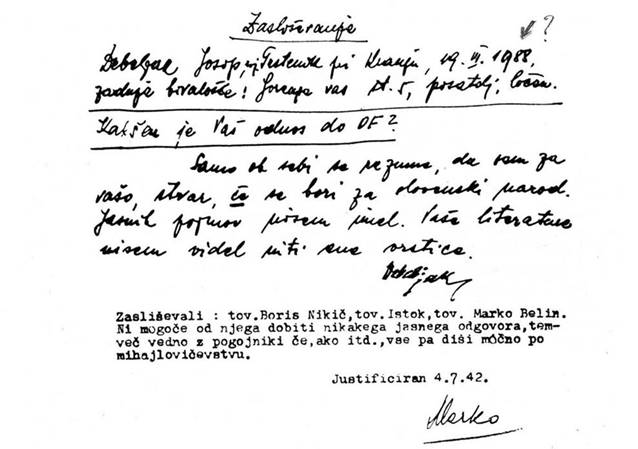 Zasliševanje
?
Debeljak Josip, iz Trstenik pri Kranju, 19. III. 1988,
zadnje bivališče: Gorenja vas št. 5, posestnik, ločen.
Kakšen je Vaš odnos do OF?
Samo ob sebi se razume, da sem za
vašo stvar, če se bori za slovenski narod.
Jasnih pojmov nisem imel. Vaše literature
nisem videl niti ene vrstice.
Debeljak
Zasliševali : tov.Boris Nikič,tov.Istok,tov. Marko Belin.
Ni mogoče od njega dobiti nikakega jasnega odgovora,tem-
več vedno z pogojniki če,ako itd.,vse pa diši močno po
mihajlovičevstvu.
Justificiran 4.7.42.
Marko